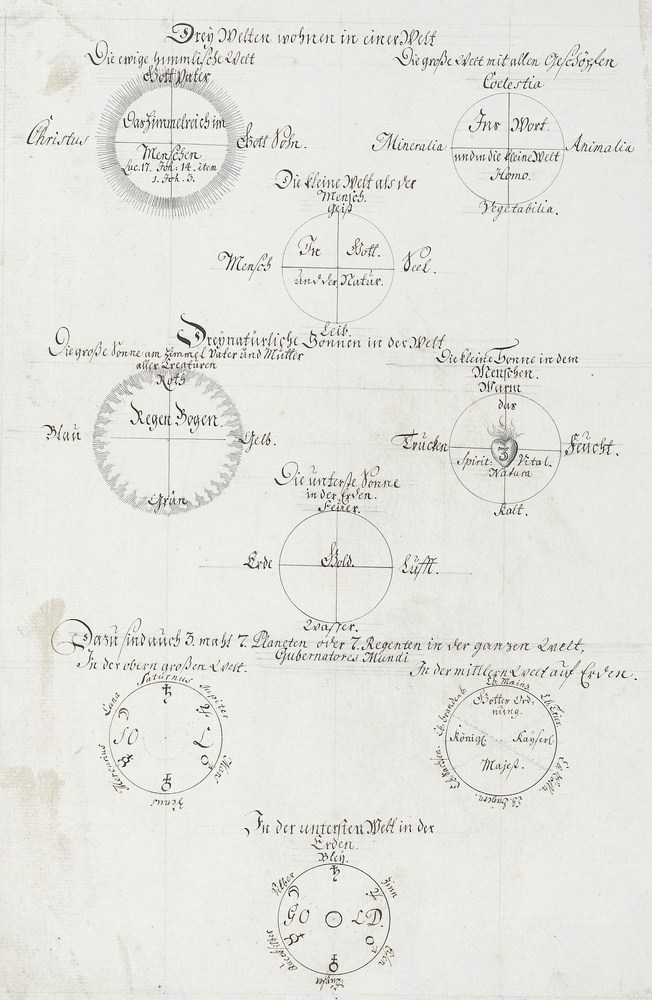 Drey Welten wohnen in einer Welt
Die ewige himmlische Welt
Gott Vater
Christus
Das Himmelreich im
Menschen
Luc. 17. Joh: 14. item
1. Joh. 3.
Gott Sohn.
Die große Welt mit allen Geschöpfen
Coelestia
Mineralia
Ins Wort.
und in die kleine Welt
Homo.
Animalia
Vegetabilia.
Die kleine Welt als der
Mensch.
Geist
Mensch
In Gott.
und der Natur.
Seel.
Leib.
Drey natürliche Sonnen in der Welt
Die große Sonne am Himmel Vater und Mutter
aller Creaturen
Roth
Blau
Regen Bogen.
Gelb.
Grün
Die kleine Sonne in dem
Menschen.
Warm
das
Trücken
3
Spirit: Vital.
Natura
Feucht.
Kalt.
Die unterste Sonne
in der Erden.
Feüer.
Erde
Gold.
Lufft.
Wasser.
Dazu sind auch 3. mahl 7. Planeten oder 7. Regenten in der ganzen Welt,
Gubernatores Mundi
In der obern großen Welt.
Saturnus
Jupiter
Mars
Venus
Mercurius
Luna
♄
♃
♂
♀
☿
☽
SO L
In der mittlern Welt auf Erden.
Ch. Mainz
Ch. Trier
Ch. Cölln.
Ch. Bayern.
Ch. Sachsen.
Ch. Brandenb
Gottes Ord-
nung.
Königl. Kayserl
Majest.
In der untersten Welt in der
Erden.
Bley.
Zinn
Eisen
Kupfer
Quecksilber
Silber
♄
♃
♂
♀
☿
☽
GO LD